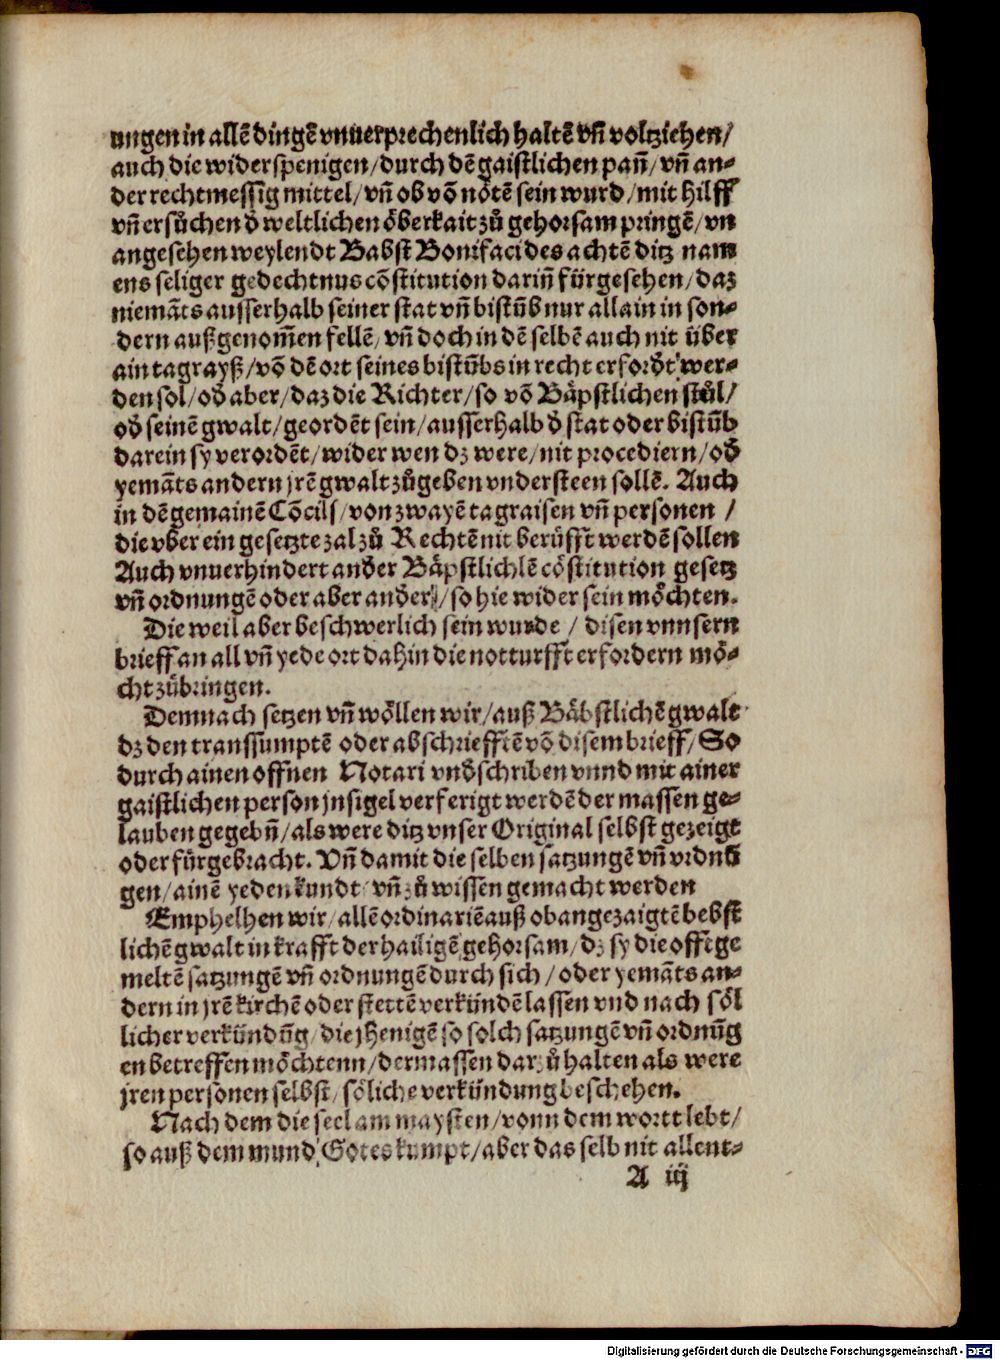 ungen in allē dingē vnuerprechenlich haltē vñ voltziehen/
auch die widerspenigen/durch dē gaistlichen pañ/vñ an-
der rechtmessig mittel/vñ ob vō nötē sein wurd/mit hilff
vñ ersůchen d̄ weltlichen öberkait zů gehorsam pringē/vn
angesehen weylendt Babst Bonifaci des achtē ditz nam
ens seliger gedechtnus cōstitution dariñ fürgesehen/daz
niemāts ausserhalb seiner stat vñ bistūb nur allain in son-
dern außgenom̄en fellē/vñ doch in dē selbē auch nit über
ain tagrayß/vō dē ort seines bistūbs in recht erford̄t wer-
den sol/od̄ aber/daz die Richter/so vō Bäpstlichen stůl/
od̄ seinē gwalt/geordēt sein/ausserhalb d̄ stat oder bistūb
darein sy verordēt/wider wen dz were/nit procediern/od̄
yemāts andern jrē gwalt zůgeben vndersteen sollē. Auch
in dē gemainē Cōcils/von zwayē tagraisen vñ personen /
die vber ein gesetzte zal zů Rechtē nit berüfft werdē sollen
Auch vnuerhindert and̄er Bäpstlichlē cōstitution gesetz
vñ ordnungē oder aber and̄er/so hie wider sein möchten.
Die weil aber beschwerlich sein wurde / disen vnnsern
brieff an all vñ yede ort dahin die notturfft erfordern mö-
cht zůbringen.
Demnach setzen vñ wöllen wir/auß Bäbstlichē gwalt
dz den transsumptē oder abschriefftē vō disem brieff/So
durch ainen offnen Notari vnd̄schriben vnnd mit ainer
gaistlichen person jnsigel verferigt werdē der massen ge-
lauben gegebñ/als were ditz vnser Original selbst gezeigt
oder fürgebracht. Vñ damit die selben satzungē vñ vrdnū
gen/ainē yeden kundt vñ zů wissen gemacht werden
Emphelhen wir/allē ordinariē auß obangezaigtē bebst
lichē gwalt in krafft der hailigē gehorsam/dz sy die offt ge
meltē satzungē vñ ordnungē durch sich/oder yemāts an-
dern in jrē kirchē oder stettē verkündē lassen vnd nach söl
licher verkündūg/die jhenigē so solch satzungē vñ ordnūg
en betreffen möchtenn/dermassen darzů halten als were
jren personen selbst/söliche verkündung beschehen.
Nach dem die seel am maysten/vonn dem wortt lebt/
so auß dem mund Gotes kumpt/aber das selb nit allent-
A iij
Digitalisierung gefördert durch die Deutsche Forschungsgemeinschaft - DFG